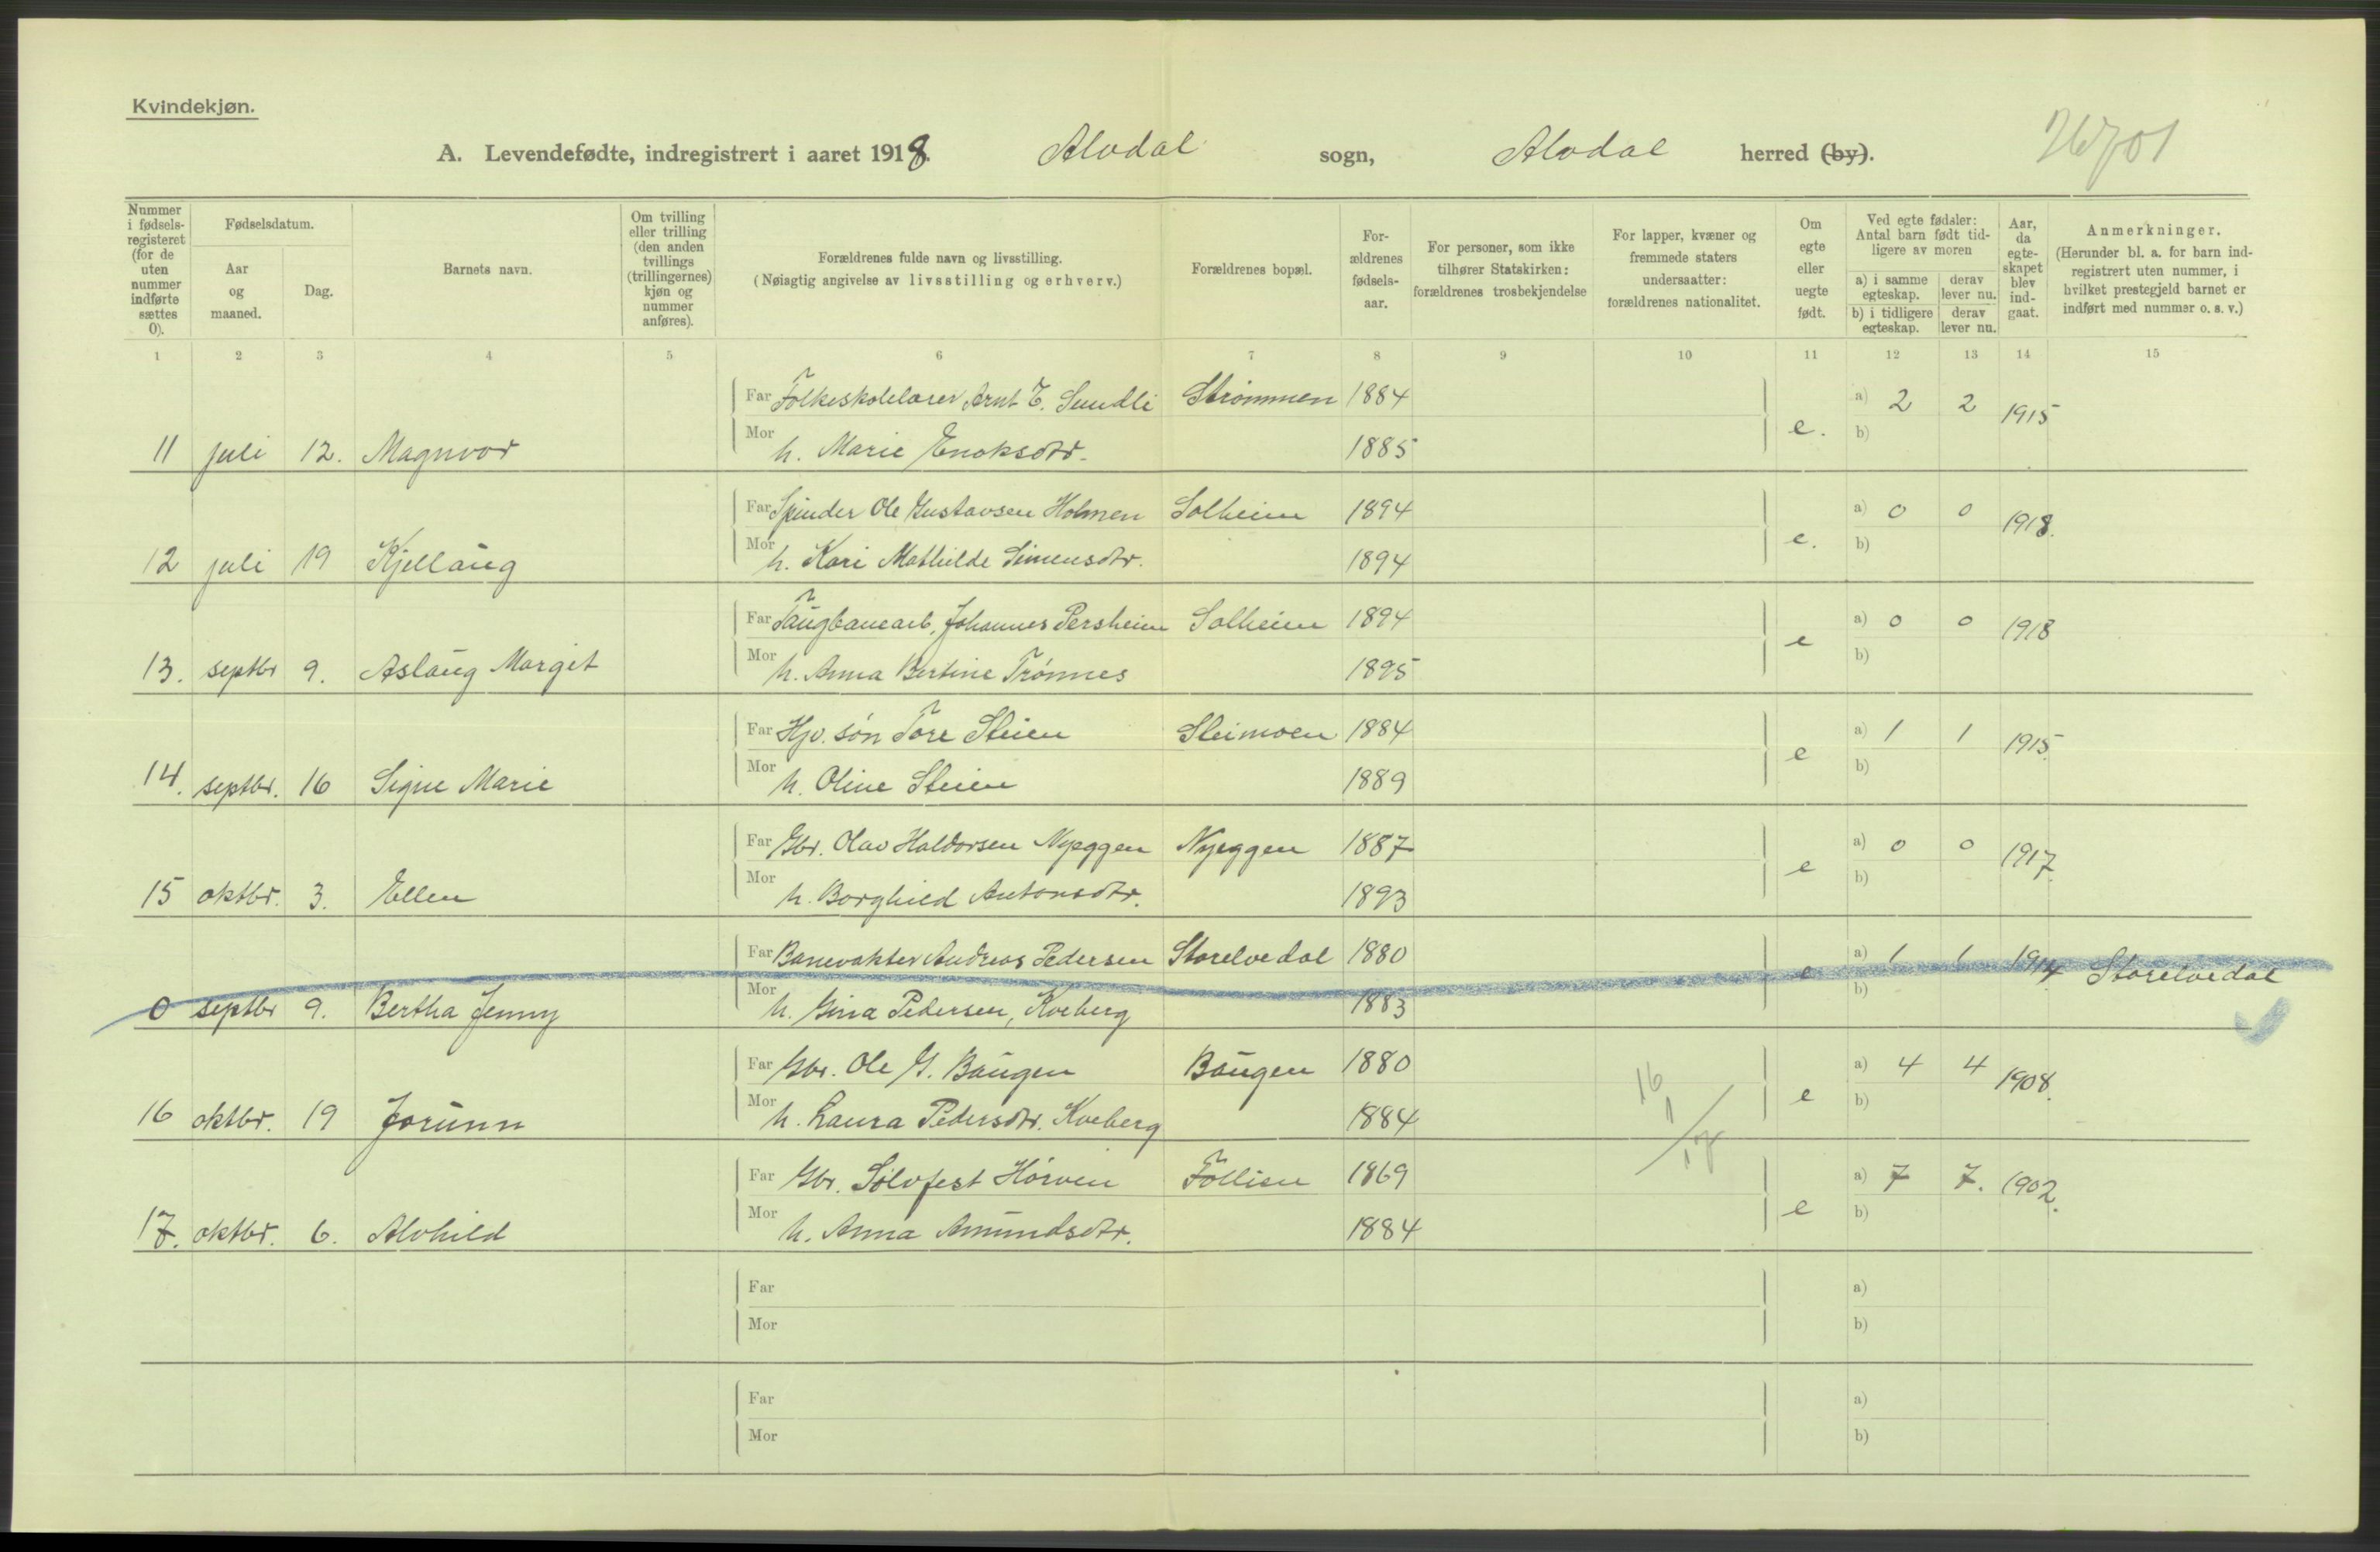 Kvindekjøn.
A. Levendefødte, indregistrert i aaret 1918. Alvdal sogn, Alvdal herred (by).
Nummer i fødsels-registeret (for de uten nummer indførte sættes 0).
Fødselsdatum.
Aar og maaned.
Dag.
Barnets navn.
Om tvilling eller trilling (den anden tvillings (trillingernes) kjøn og nummer anføres).
Forældrenes fulde navn og livsstilling.
(Nøiagtig angivelse av livsstilling og erhverv.)
Forældrenes bopæl.
For-ældrenes fødsels-aar.
For personer, som ikke tilhører Statskirken: forældrenes trosbekjendelse
For lapper, kvæner og fremmede staters undersaatter: forældrenes nationalitet.
Om egte eller uegte født.
Ved egte fødsler: Antal barn født tid-ligere av moren
a) i samme egteskap.
derav lever nu.
b) i tidligere egteskap.
derav lever nu.
Aar, da egte-skapet blev ind-gaat.
Anmerkninger.
(Herunder bl. a. for barn ind-registrert uten nummer, i hvilket prestegjeld barnet er indført med nummer o. s. v.)
1 2 3 4 5 6 7 8 9 10 11 12 13 14 15
Far Folkeskolelærer Arnt T. Sundli Strømmen 1884 a) 2 2 1915
11 juli 12. Magnvor Mor h. Marie Enoksdtr. 1885 e. b)
Far Ole Gustavsen Holmen Solheim 1894 a) 0 0 1918.
12 juli 19 Kjellaug Mor h. Kari Mathilde Simensdtr. 1894 e. b)
Far Taugbanearb. Johannes Persheim Solheim 1894 a) 0 0 1918
13. septbr 9. Aslaug Margit Mor h. Anna Bertine Trønnes 1895 e b)
Far Hjv. søn Tore Steien Steimoen 1884 a) 1 1 1915.
14. septbr. 16 Signe Marie Mor h. Oline Steien 1889 e b)
Far Gbr. Olav Haldorsen Nyeggen Nyeggen 1887 a) 0 0 1917.
15 oktbr. 3. Ellen Mor h. Borghild Antonsdtr. 1893 e b)
Far Banevakter Andreas Pedersen Storelvedal 1880 a) 1 1 1914 Storelvedal
0 septbr 9. Bertha Jenny Mor h. Gina Pedersen, Kveberg 1883 e b)
Far Gbr. Ole G. Baugen Baugen 1880 a) 4 4 1908.
16 oktbr. 19 Jorunn Mor h. Laura Pedersdtr. Kveberg 1884 e b)
Far Gbr. Sølvfest Hørven Follien 1869 a) 7 7. 1902.
17. oktbr. 6. Alvhild Mor h. Anna Amundsdtr. 1884 e b)
Far a)
Mor b)
Far a)
Mor b)